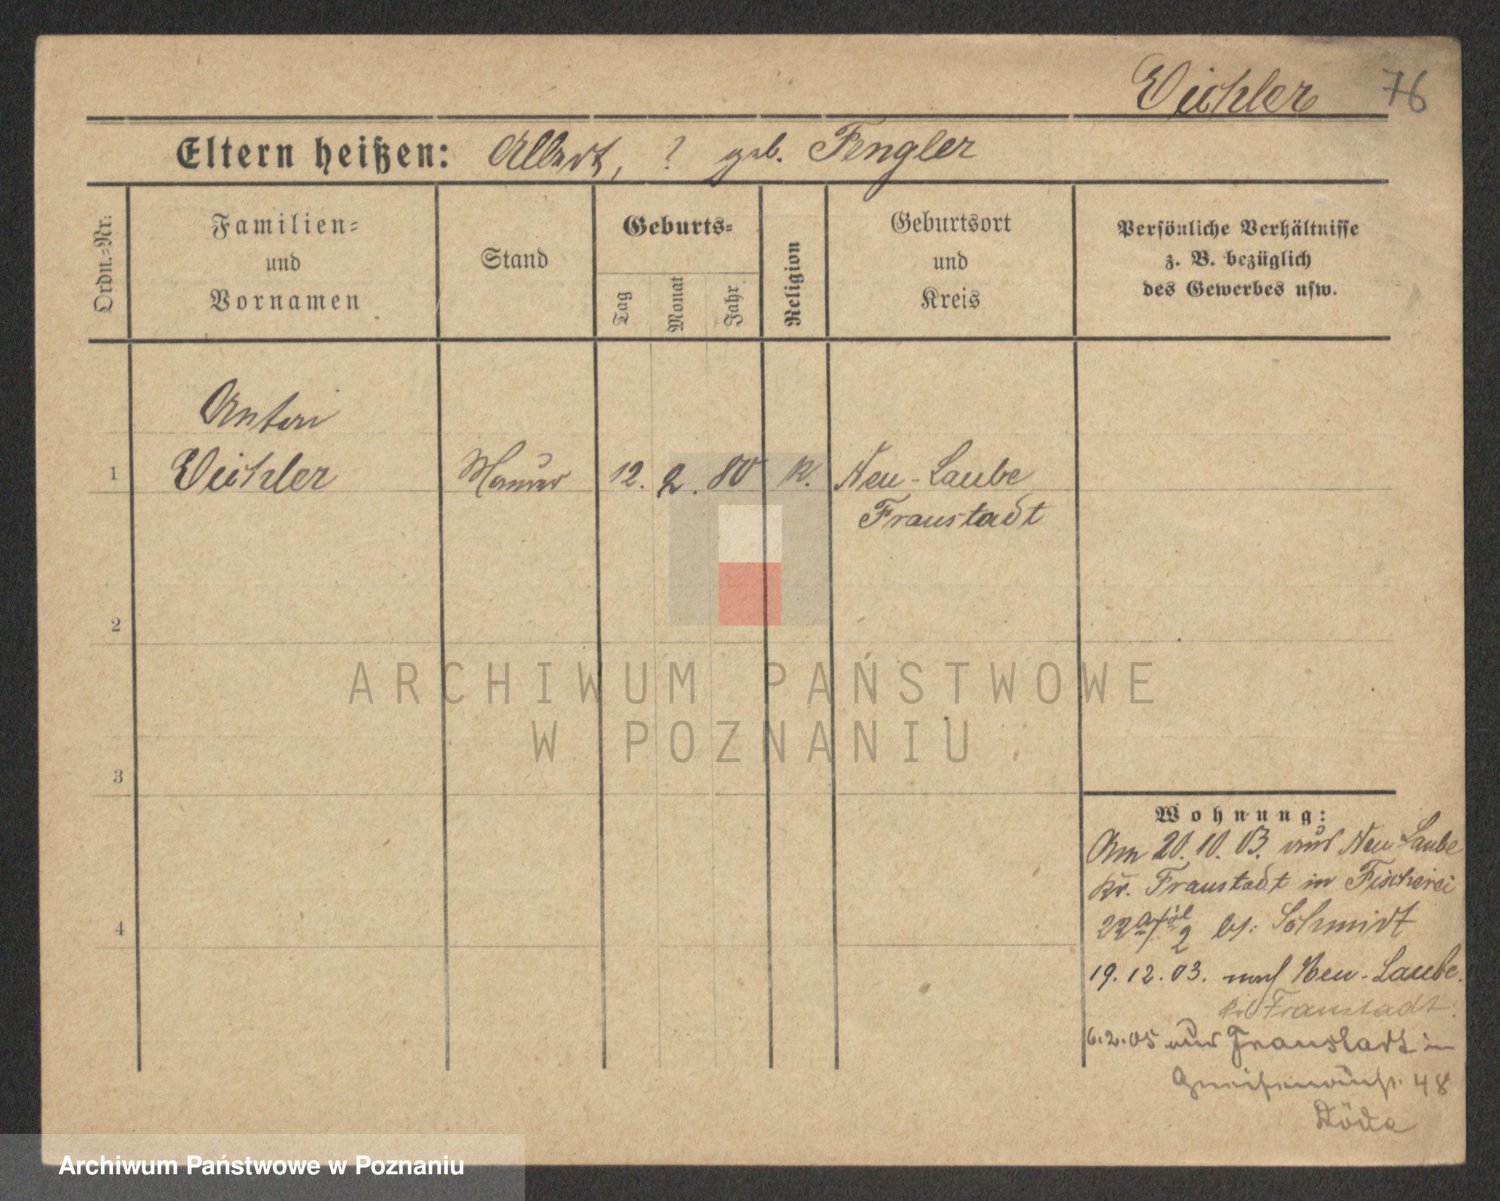 Eichler 76
Eltern heißen: Albert, ? geb. Fengler
Ordn.=Nr.
Familien=
und
Vornamen
Stand
Geburts=
Tag
Monat
Jahr
Religion
Geburtsort
und
Kreis
Persönliche Verhältnisse
z. B. bezüglich
des Gewerbes usw.
Anton
1 Eichler Maurer 12. 2. 80 k. Neu-Laube
Fraustadt
2
3
4
Wohnung:
Am 20.10.03. aus Neu Laube
Kr. Fraustadt in Fischerei
22 2 bei Schmidt
19.12.03. nach Neu-Laube.
Kr. Fraustadt.
6.2.05 aus Fraustadt in
48
ARCHIWUM PAŃSTWOWE
W POZNANIU
Archiwum Państwowe w Poznaniu